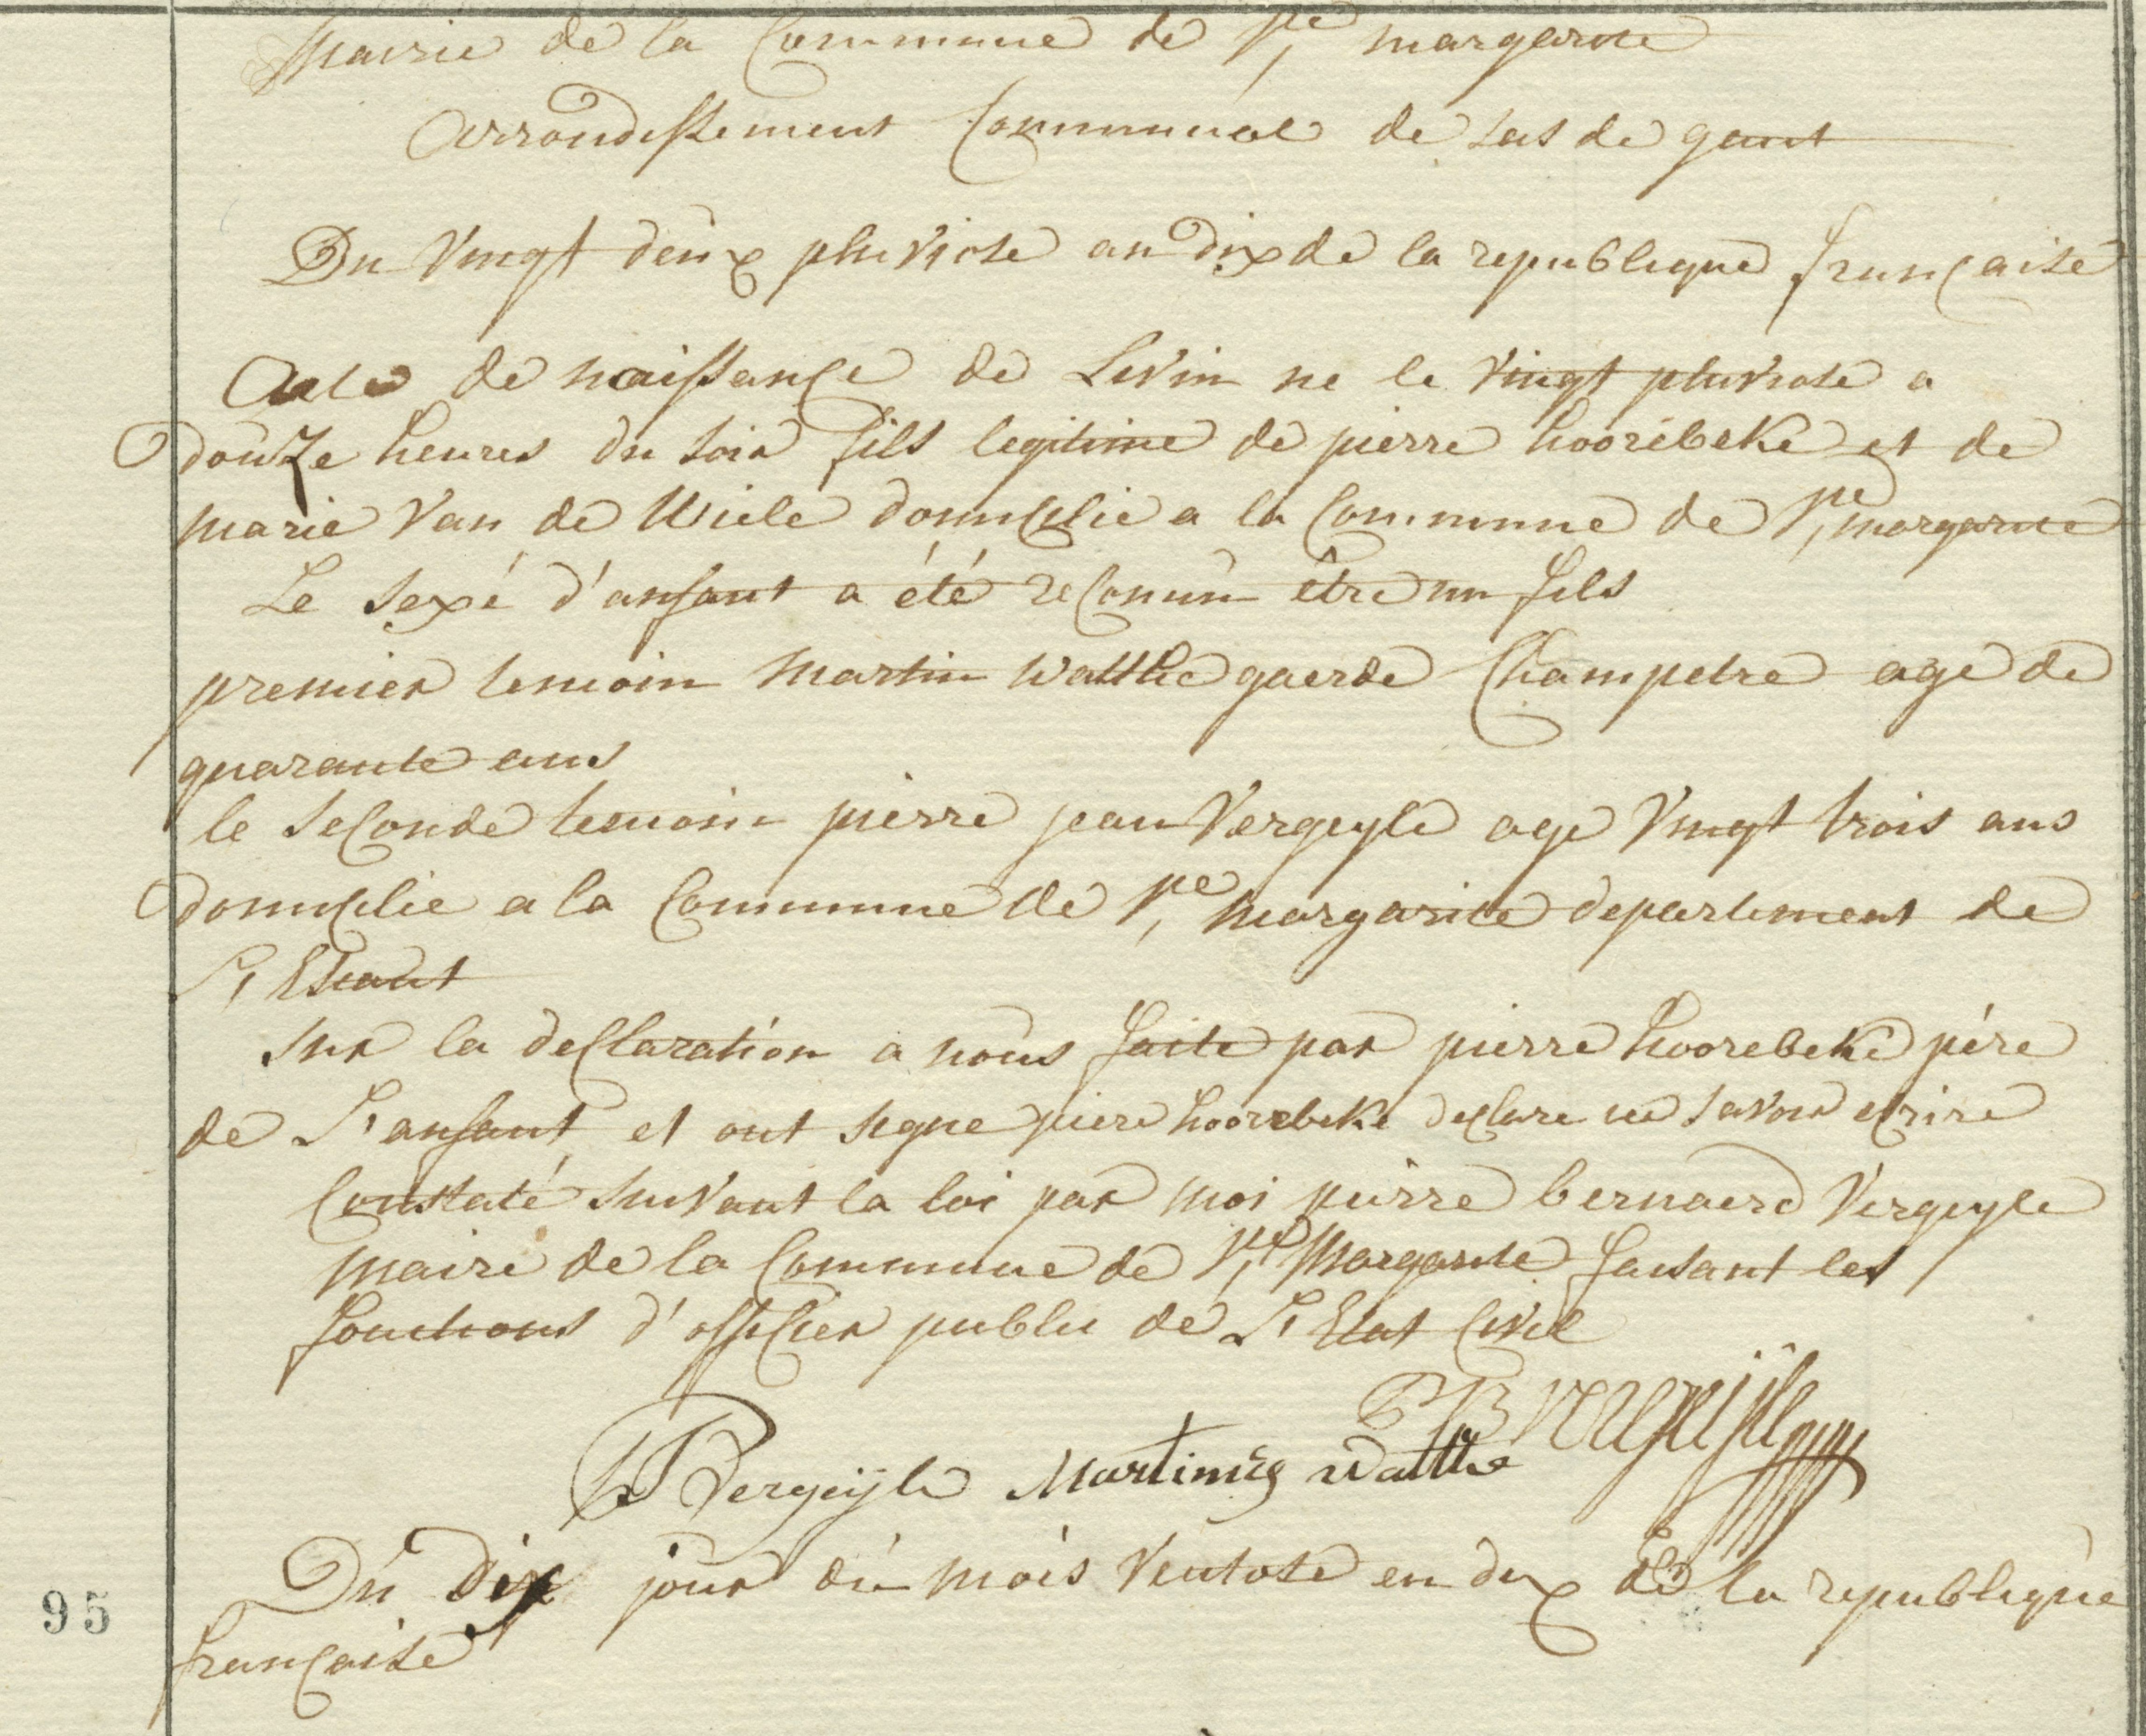 Mairie de la Commune de Ste margarite
Arrondissement Communal de sas de gant
Du Vingt deux pluviose an dix de la republique française
Acte de naissance de Livin ne le vingt pluviose a
douze heures du soir fils legitime de pierre hoorebeke et de
marie Van de Wiele domicilie a la Commune de Ste margarite
Le sexé d'ansant a été reconnu être un fils
premier temoin Martin Watthe gaerde Champetre age de
quarante ans
le seconde temoin pierre jean Vergeyle age Vingt trois ans
domicilie a la Commune de Ste margarite departement de
L'Escaut
sur la declaration a nous faite par pierre hoorebeke pére
de L'ansant et ont signe piere hoorebeke declare ne savoir ecrire
Constaté suivant la loi par moi pierre bernaerd Vergeyle
maire de la Commune de Ste Margarite faisant les
fonctions d'officier public de L'Etat Civil
PB Vergeijle
PJ Vergeijle Martinus Watthe
Du dix jour du mois Ventose en dix de la republique
95
française